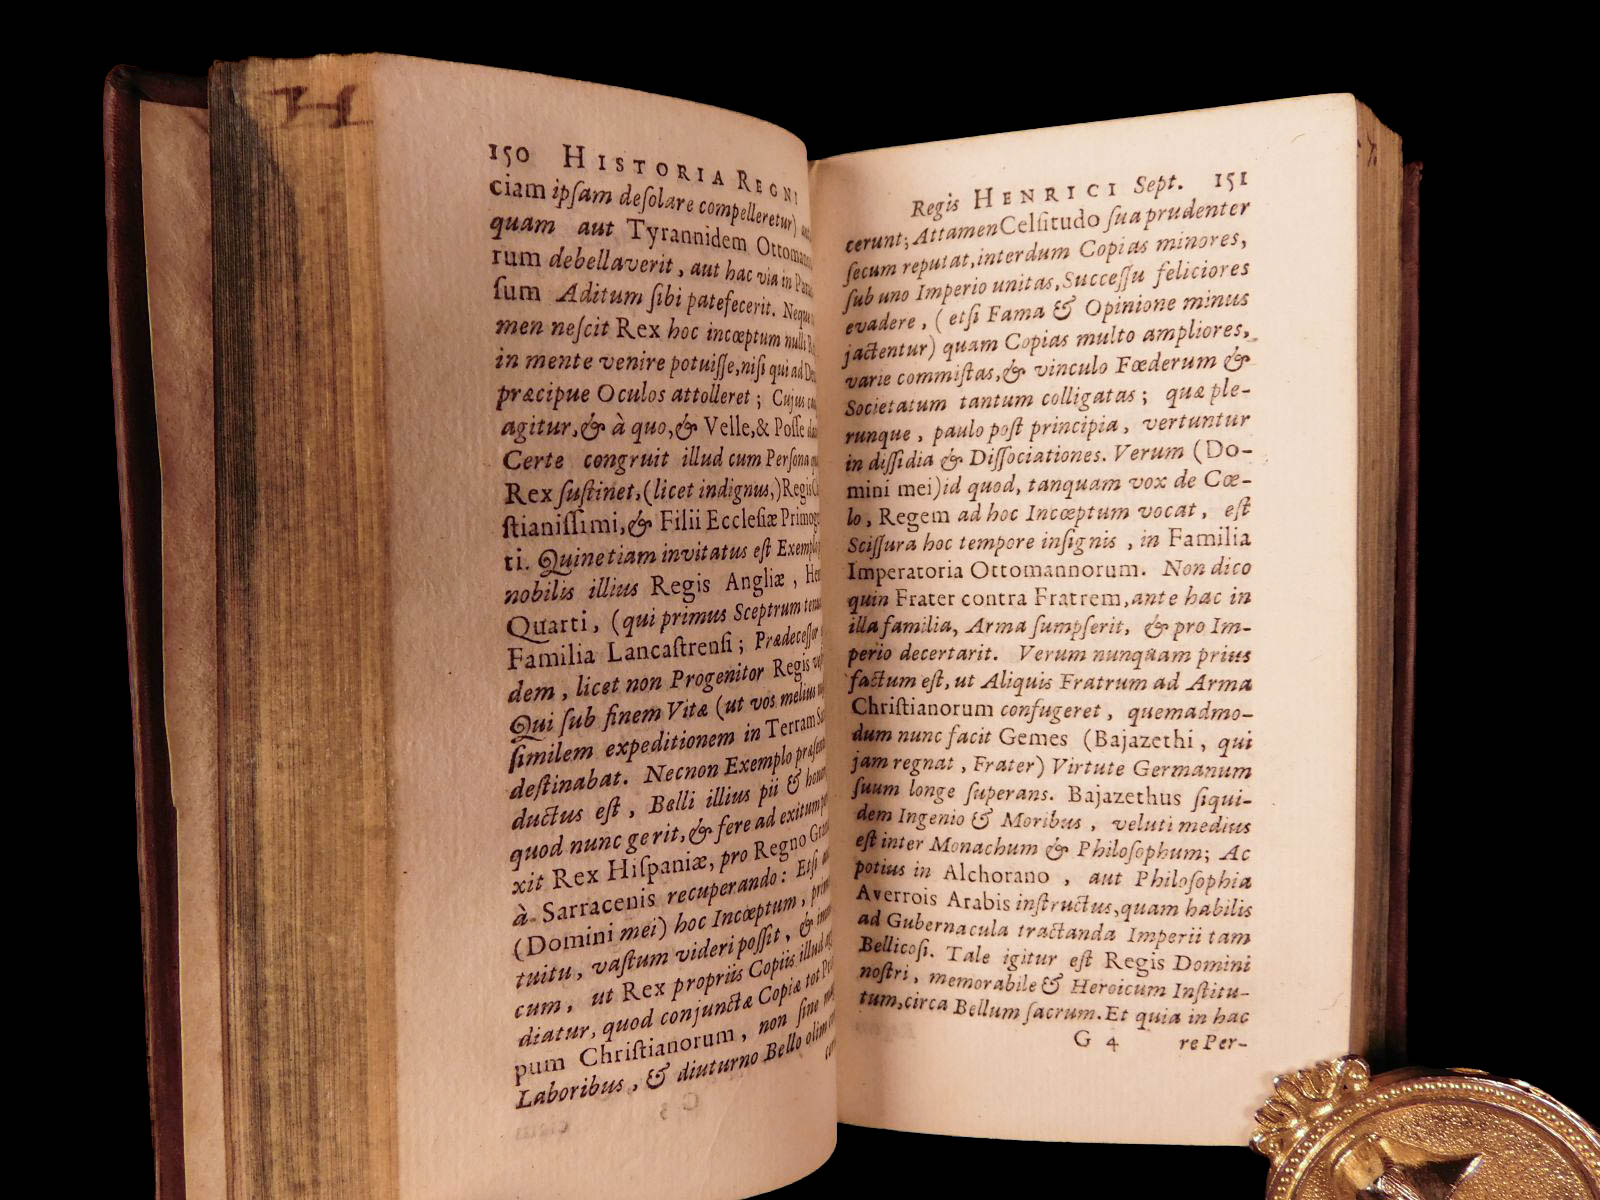 150 HISTORIA REGNI
ciam ipſam deſolare compelleretur)
quam aut Tyrannidem Ottoman
rum debellaverit, aut hac via in Para
ſum Aditum ſibi patefecerit. Neque
men neſcit Rex hoc incœptum nulli
in mente venire potuiſſe, niſi qui ad De
præcipue Oculos attolleret; Cujus
agitur, & à quo, & Velle, & Poſſe
Certe congruit illud cum Perſona
Rex ſuſtinet, (licet indignus,) Regis
ſtianiſſimi, & Filii Eccleſiæ Primog
ti. Quinetiam invitatus eſt Exempl
nobilis illius Regis Angliæ, Hen
Quarti, (qui primus Sceptrum
Familia Lancaſtrenſi; Prædeceſſor
dem, licet non Progenitor Regis
Qui ſub finem Vitæ (ut vos melius
ſimilem expeditionem in Terram
deſtinabat. Necnon Exemplo præſen
ductus eſt, Belli illius pii & hono
quod nunc gerit, & fere ad exitum
xit Rex Hiſpaniæ, pro Regno Gra
à Sarracenis recuperando: Etſi
(Domini mei) hoc Incœptum, prim
tuitu, vaſtum videri poſſit, &
cum, ut Rex propriis Copiis illud
diatur, quod conjunctæ Copiæ tot Prin
pum Chriſtianorum, non ſine
Laboribus, & diuturno Bello olim
Regis HENRICI Sept. 151
cerunt; Attamen Celſitudo ſua prudenter
ſecum reputat, interdum Copias minores,
ſub uno Imperio unitas, Succeſſu feliciores
evadere, (etſi Fama & Opinione minus
jactentur) quam Copias multo ampliores,
varie commiſtas, & vinculo Fœderum &
Societatum tantum colligatas; quæ ple-
runque, paulo poſt principia, vertuntur
in diſſidia & Diſſociationes. Verum (Do-
mini mei) id quod, tanquam vox de Cœ-
lo, Regem ad hoc Incœptum vocat, eſt
Sciſſura hoc tempore inſignis, in Familia
Imperatoria Ottomannorum. Non dico
quin Frater contra Fratrem, ante hac in
illa familia, Arma ſumpſerit, & pro Im-
perio decertarit. Verum nunquam prius
factum eſt, ut Aliquis Fratrum ad Arma
Chriſtianorum confugeret, quemadmo-
dum nunc facit Gemes (Bajazethi, qui
jam regnat, Frater) Virtute Germanum
ſuum longe ſuperans. Bajazethus ſiqui-
dem Ingenio & Moribus, veluti medius
eſt inter Monachum & Philoſophum; Ac
potius in Alchorano, aut Philoſophia
Averrois Arabis inſtructus, quam habilis
ad Gubernacula tractanda Imperii tam
Bellicoſi. Tale igitur eſt Regis Domini
noſtri, memorabile & Heroicum Inſtitu-
tum, circa Bellum ſacrum. Et quia in hac
G 4 re Per-